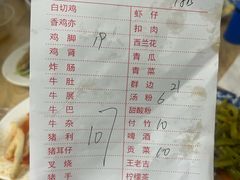 185
白切鸡 虾仔
香鸡亦 扣肉
鸡脚 19 西兰花
鸡肾 青瓜
炸肠 青菜
牛肚 群边 21
牛展 汤粉 6
牛巴 甜酸粉
牛杂 付竹 10
猪利 107 啤酒
猪耳仔 贡菜 60
叉烧 王老吉
猪手 柠檬茶